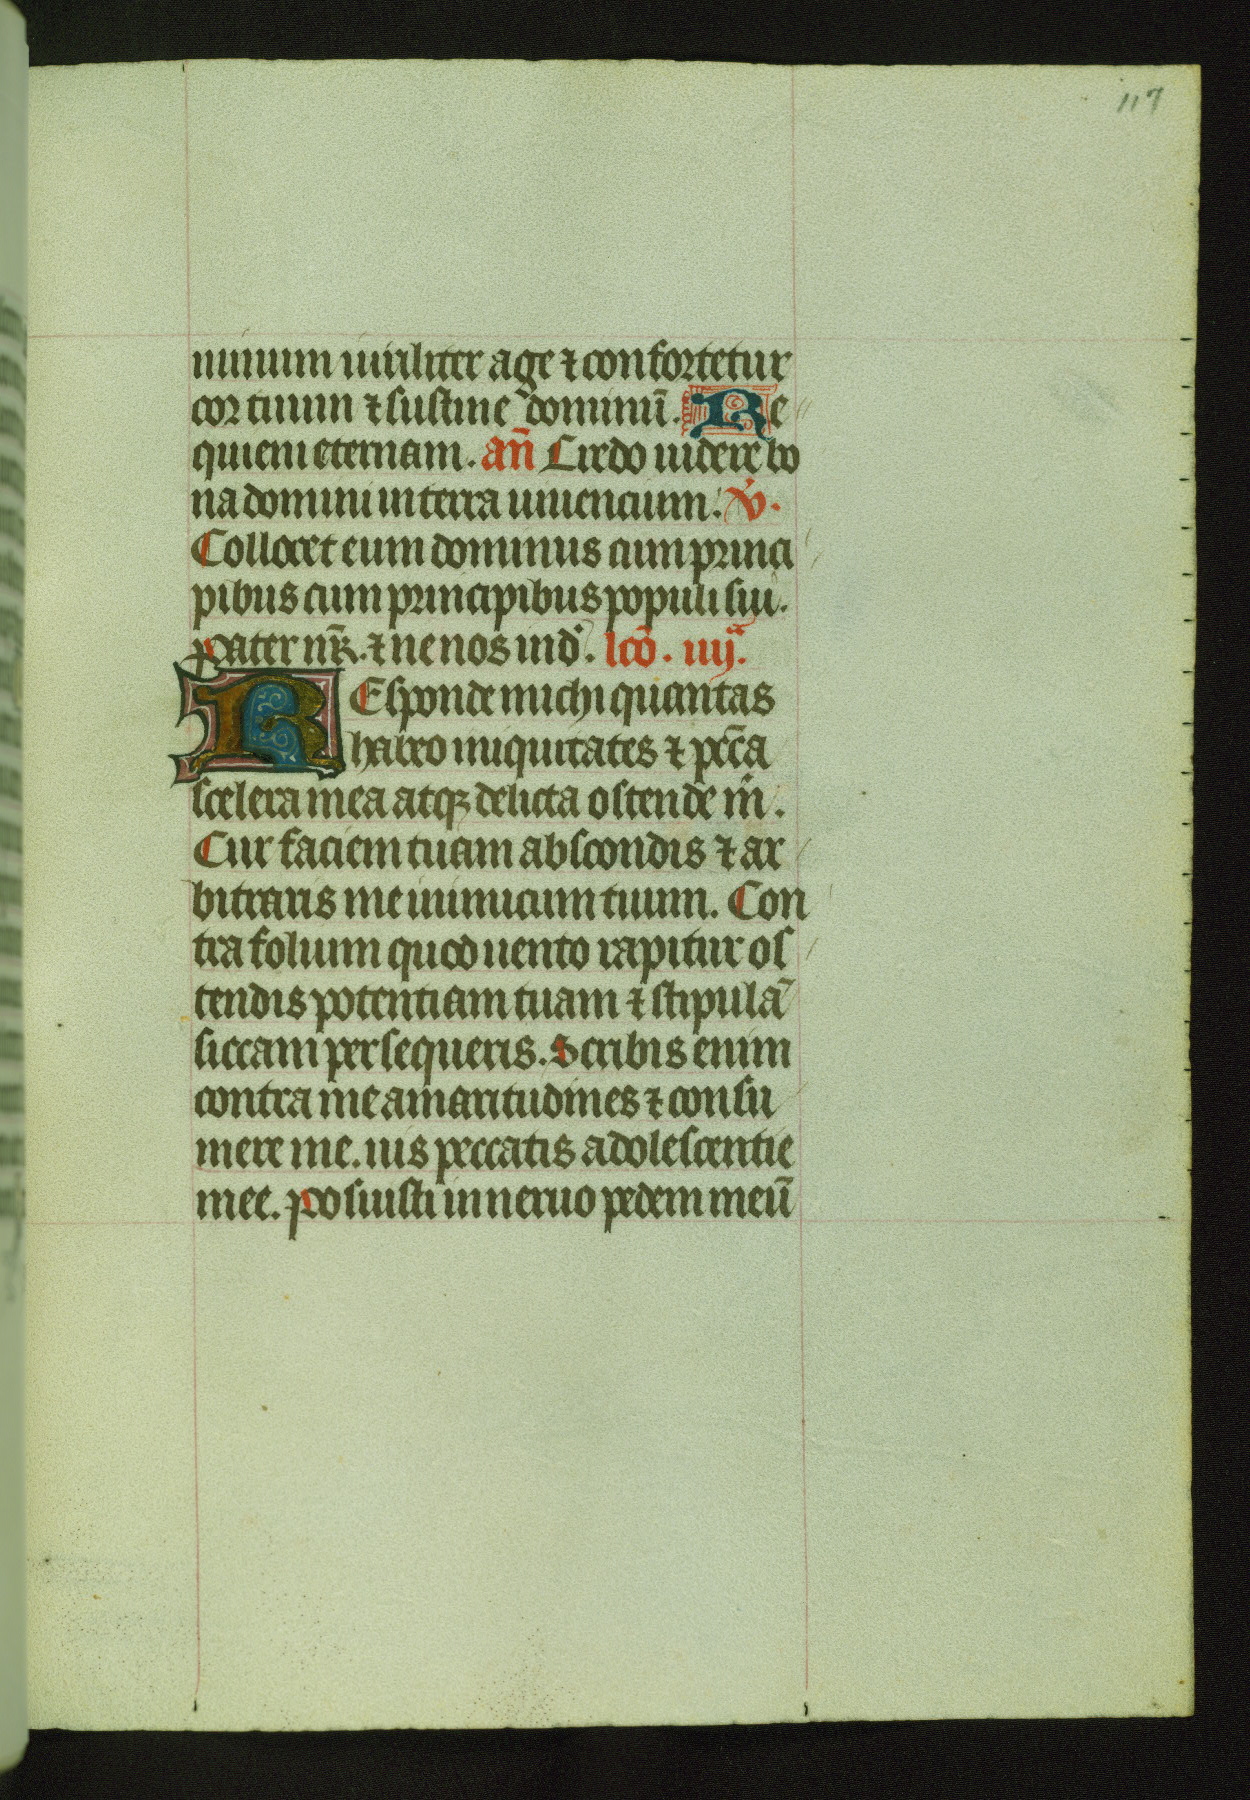 117
minum uiriliter age ⁊ confortetur
cor tuum ⁊ sustine dominū. Re
quiem eternam. añ Credo uidere bo
na domini in terra uiuencium. v̇.
Collocet eum dominus cum princi
pibus cum principibus populi sui.
Pater nr̄. ⁊ ne nos ind᾽. lcō. iiijᵃ.
REsponde michi quantas
habeo iniquitates ⁊ pctā
scelera mea atqꝫ delicta ostende m̄.
Cur faciem tuam abscondis ⁊ ar
bitraris me inimicum tuum. Con
tra folium quod uento rapitur os
tendis potentiam tuam ⁊ stipulā
siccam persequeris. Scribis enim
contra me amaritudines ⁊ consu
mere me. uis peccatis adolescentie
mee. Posuisti in neruo pedem meū